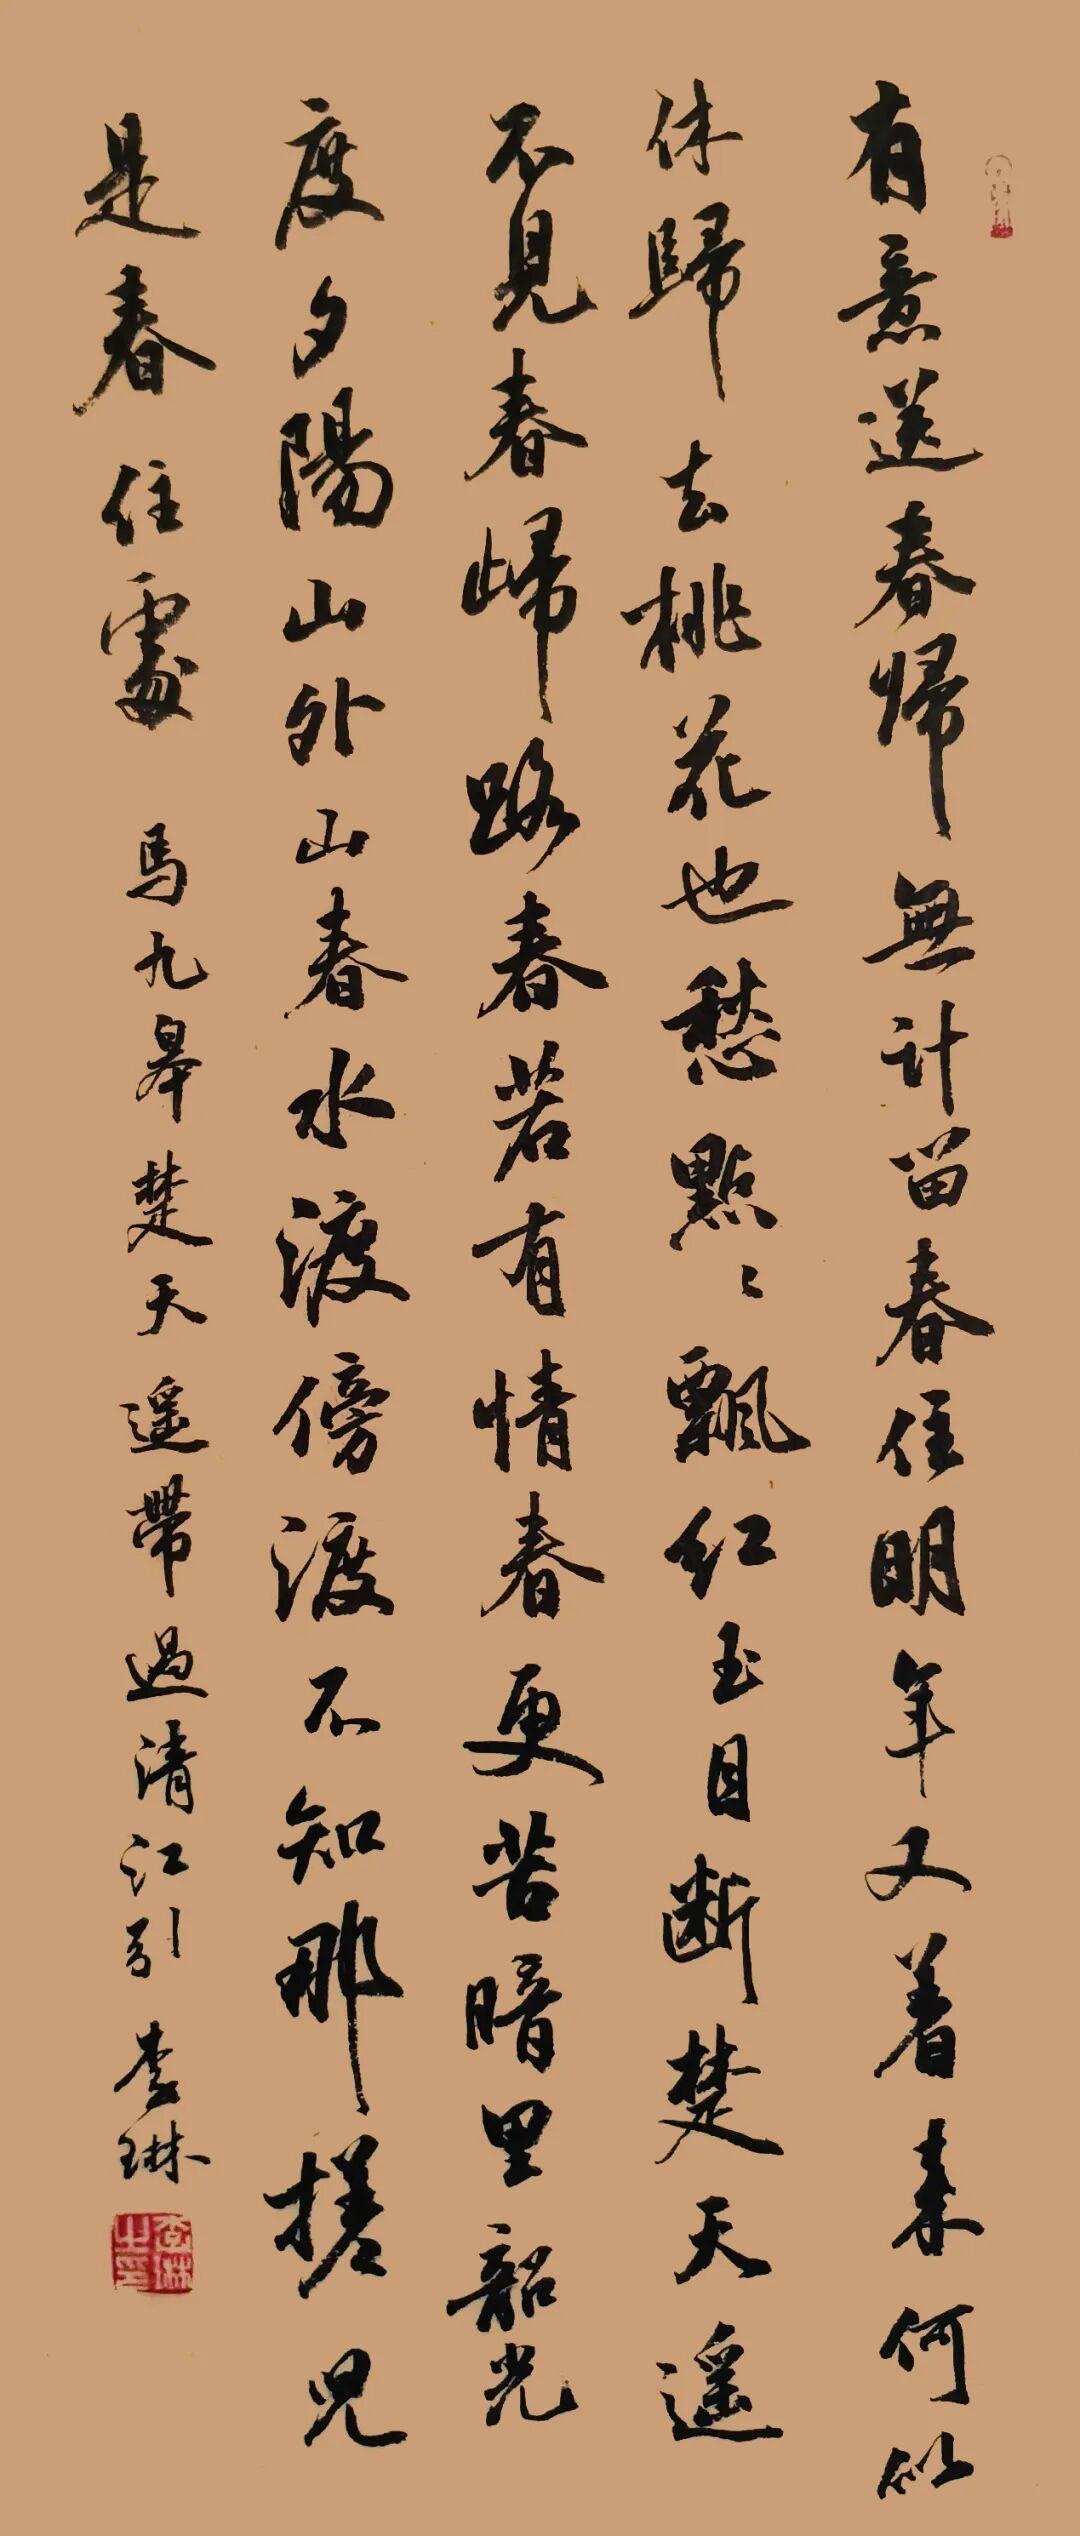 有意送春歸無計留春住明年又着来何似
休歸去桃花也愁點々飄红玉目断楚天遥
不見春歸路春若有情春更苦暗里韶光
度夕陽山外山春水渡傍渡不知那搓児
是春住處
馬九皋楚天遥帶過清江引 李琳
李琳之印